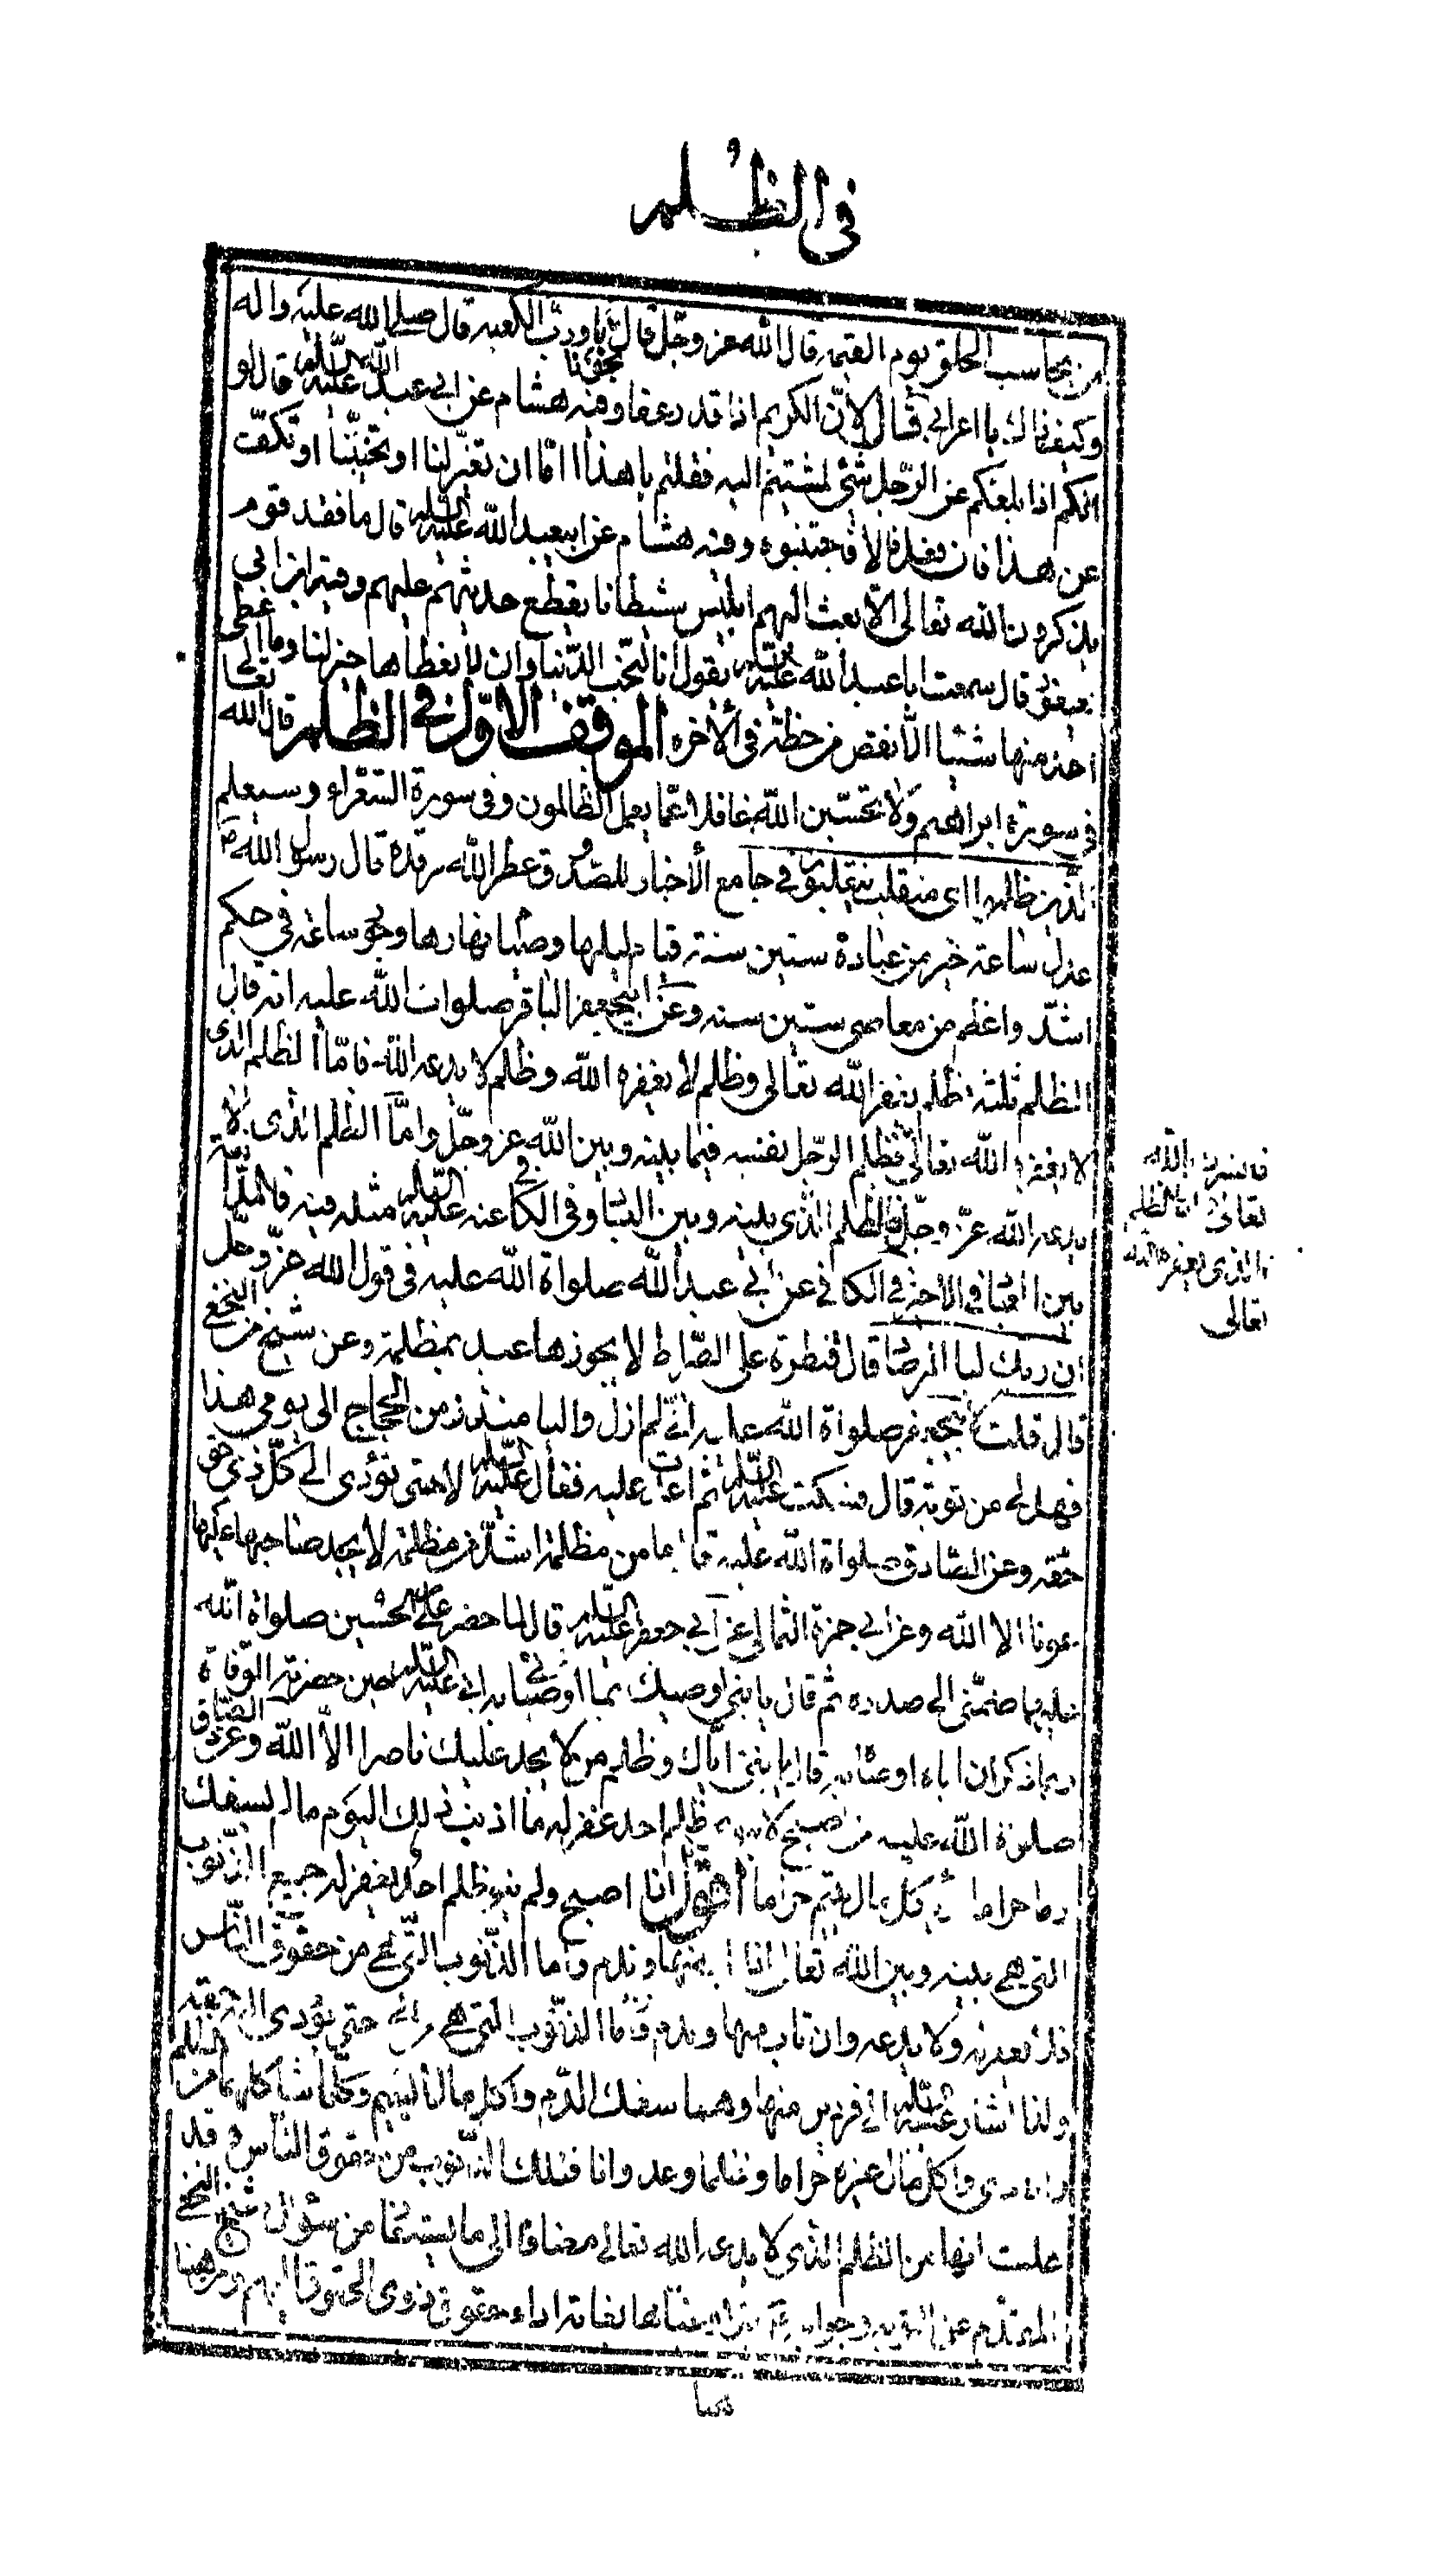 في الظلم
من يحاسب الخلق يوم القيمة قال الله عز وجل قال نجونا ورب الكعبة قال صلى الله عليه واله
وكيف ذاك يا اعرابي قال لان الكريم اذا قدر عفا وفيه هشام عن ابي عبد الله عليه السلام قال لو
انكم اذا بلغكم عن الرجل شئ لمشيتم اليه فقلتم يا هذا اما ان تعتزلنا او تجتنبنا او تكف
عن هذا فان فعل والا فاجتنبوه وفيه هشام عن ابيعبد الله عليه السلام قال ما فقد قوم
يذكرون الله تعالى الا بعث اليهم ابليس شيطانا يقطع حديثهم عليهم وفيه ابن ابي
يعفور قال سمعت ابا عبد الله عليه السلام يقول انا لنحب الدنيا وان لا نعطاها خير لنا وما اعطى
احد منها شيئا الا نقص من حظه في الاخرة الموقف الاول في الظلم قال الله تعالى
في سورة ابراهيم ولا تحسبن الله غافلا عما يعمل الظالمون وفي سورة الشعراء وسيعلم
الذين ظلموا اى منقلب ينقلبون في جامع الاخبار للصدوق عطر الله مرقده قال رسول الله ص
عدل ساعة خير من عبادة ستين سنة قيام ليلها وصيام نهارها وجور ساعة في حكم
اشد واعظم من معاصى ستين سنة وعن ابيجعفر الباقر صلوات الله عليه انه قال
الظلم ثلثة ظلم يغفر الله تعالى وظلم لا يغفره الله وظلم لا يدعه الله فاما الظلم الذي
لا يغفره الله تعالى فظلم الرجل نفسه فيما بينه وبين الله عز وجل واما الظلم الذي لا
يدعه الله عز وجل فالظلم الذي بينه وبين العباد وفي الكافي عنه عليه السلام مثله فيه فالمداينة
بين العباد في الاخرة في الكافي عن ابي عبد الله صلواة الله عليه في قول الله عز وجل
ان ربك لبا المرصاد قال قنطرة على الصراط لا يجوزها عبد بمظلمة وعن شيخ من النخع
قال قلت لابيجعفر صلواة الله عليه اني لم ازل واليا منذ زمن الحجاج الى يومي هذا
فهل لي من توبة قال فسكت عليه السلام ثم اعدت عليه فقال عليه السلام لا حتى تؤدى الى كل ذي حق
حقه وعن الصادق صلواة الله عليه قال ما من مظلمة اشد من مظلمة لا يجد صاحبها عليها
عونا الا الله وعن ابي حمزة الثمالي عن ابي جعفر عليه السلام قال لما حضر علي بن الحسين صلواة الله
عليهما ضمني الى صدره ثم قال يا بني اوصيك بما اوصاني به ابي عليه السلام حين حضرته الوفاة
وبما ذكر ان اباه اوصاه به قال يا بني اياك وظلم من لا يجد عليك ناصرا الا الله وعن الصادق
صلواة الله عليه من اصبح لا ينوي ظلم احد غفر له ما اذنب ذلك اليوم ما لم يسفك
دما حراما او ياكل مال يتيم حراما اقول اذا اصبح ولم ينو ظلم احد يغفر له جميع الذنوب
التي هي بينه وبين الله تعالى اذا تاب منها وندم واما الذنوب التي هي من حقوق الناس
ولذا اشار عليه السلام الى فردين منها وهما سفك الدم واكل مال اليتيم وكلما شاكلهما من الظلم
واكل مال غيره حراما وظلما وعدوانا فتلك الذنوب من حقوق الناس وقد
علمت انها من الظلم الذي لا يدعه الله تعالى مضافا الى ما يستفاد من سؤال شيخ النخع
المتقدم عن التوبة وجوابه
فانسره الله
تعالى اما الظلم
الذي يغفره الله
تعالى